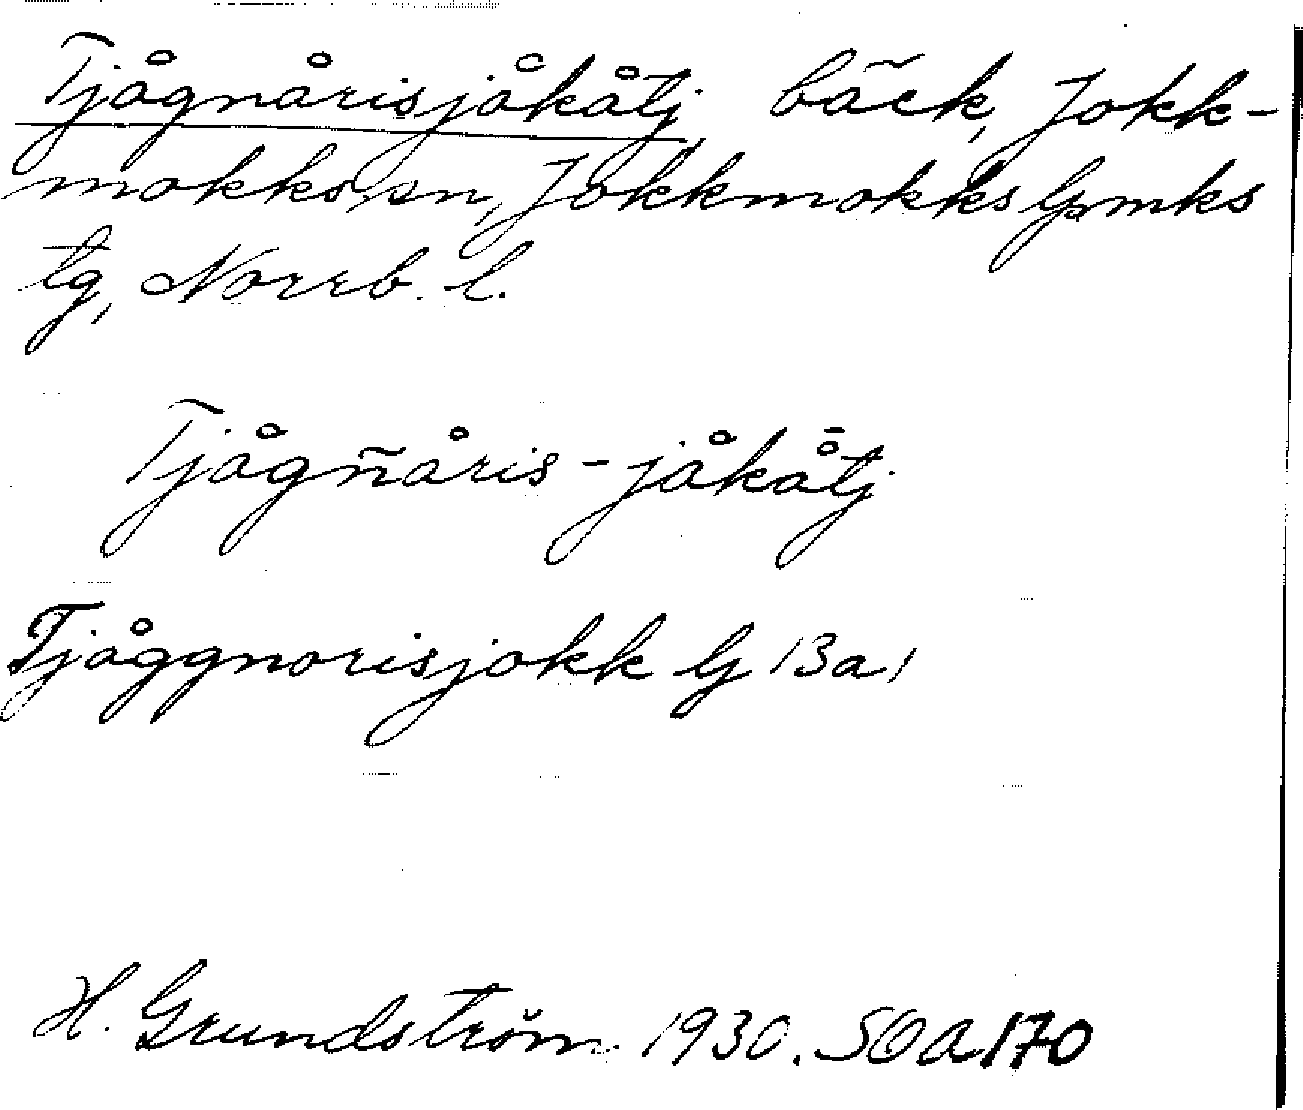 Tjågnårisjåkåtj bäck, Jokk-
mokks sn, Jokkmokks lpmks
tg, Norrb. l.
Tjågñåris-jåkåtj
Tjåggnorisjokk G 13a1
H. Grundström 1930. SOA 170